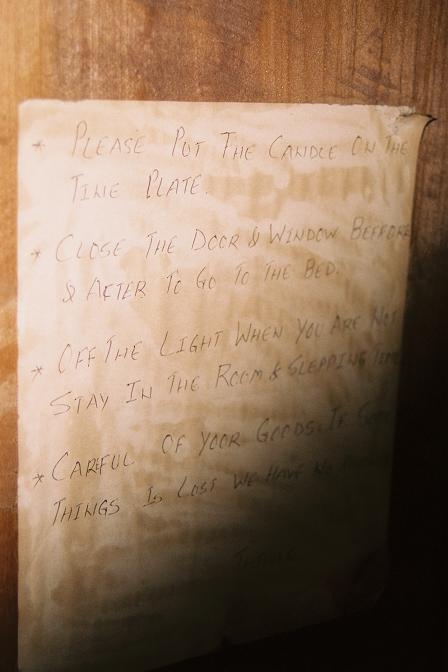 * PLEASE PUT THE CANDLE ON THE
TINE PLATE.
* CLOSE THE DOOR & WINDOW BEFFORE
& AFTER TO GO TO THE BED.
* OFF THE LIGHT WHEN YOU ARE NOT
STAY IN THE ROOM & SLEPPING
* CAREFUL OF YOUR GOODS. IF
THINGS IS LOST WE HAVE NO